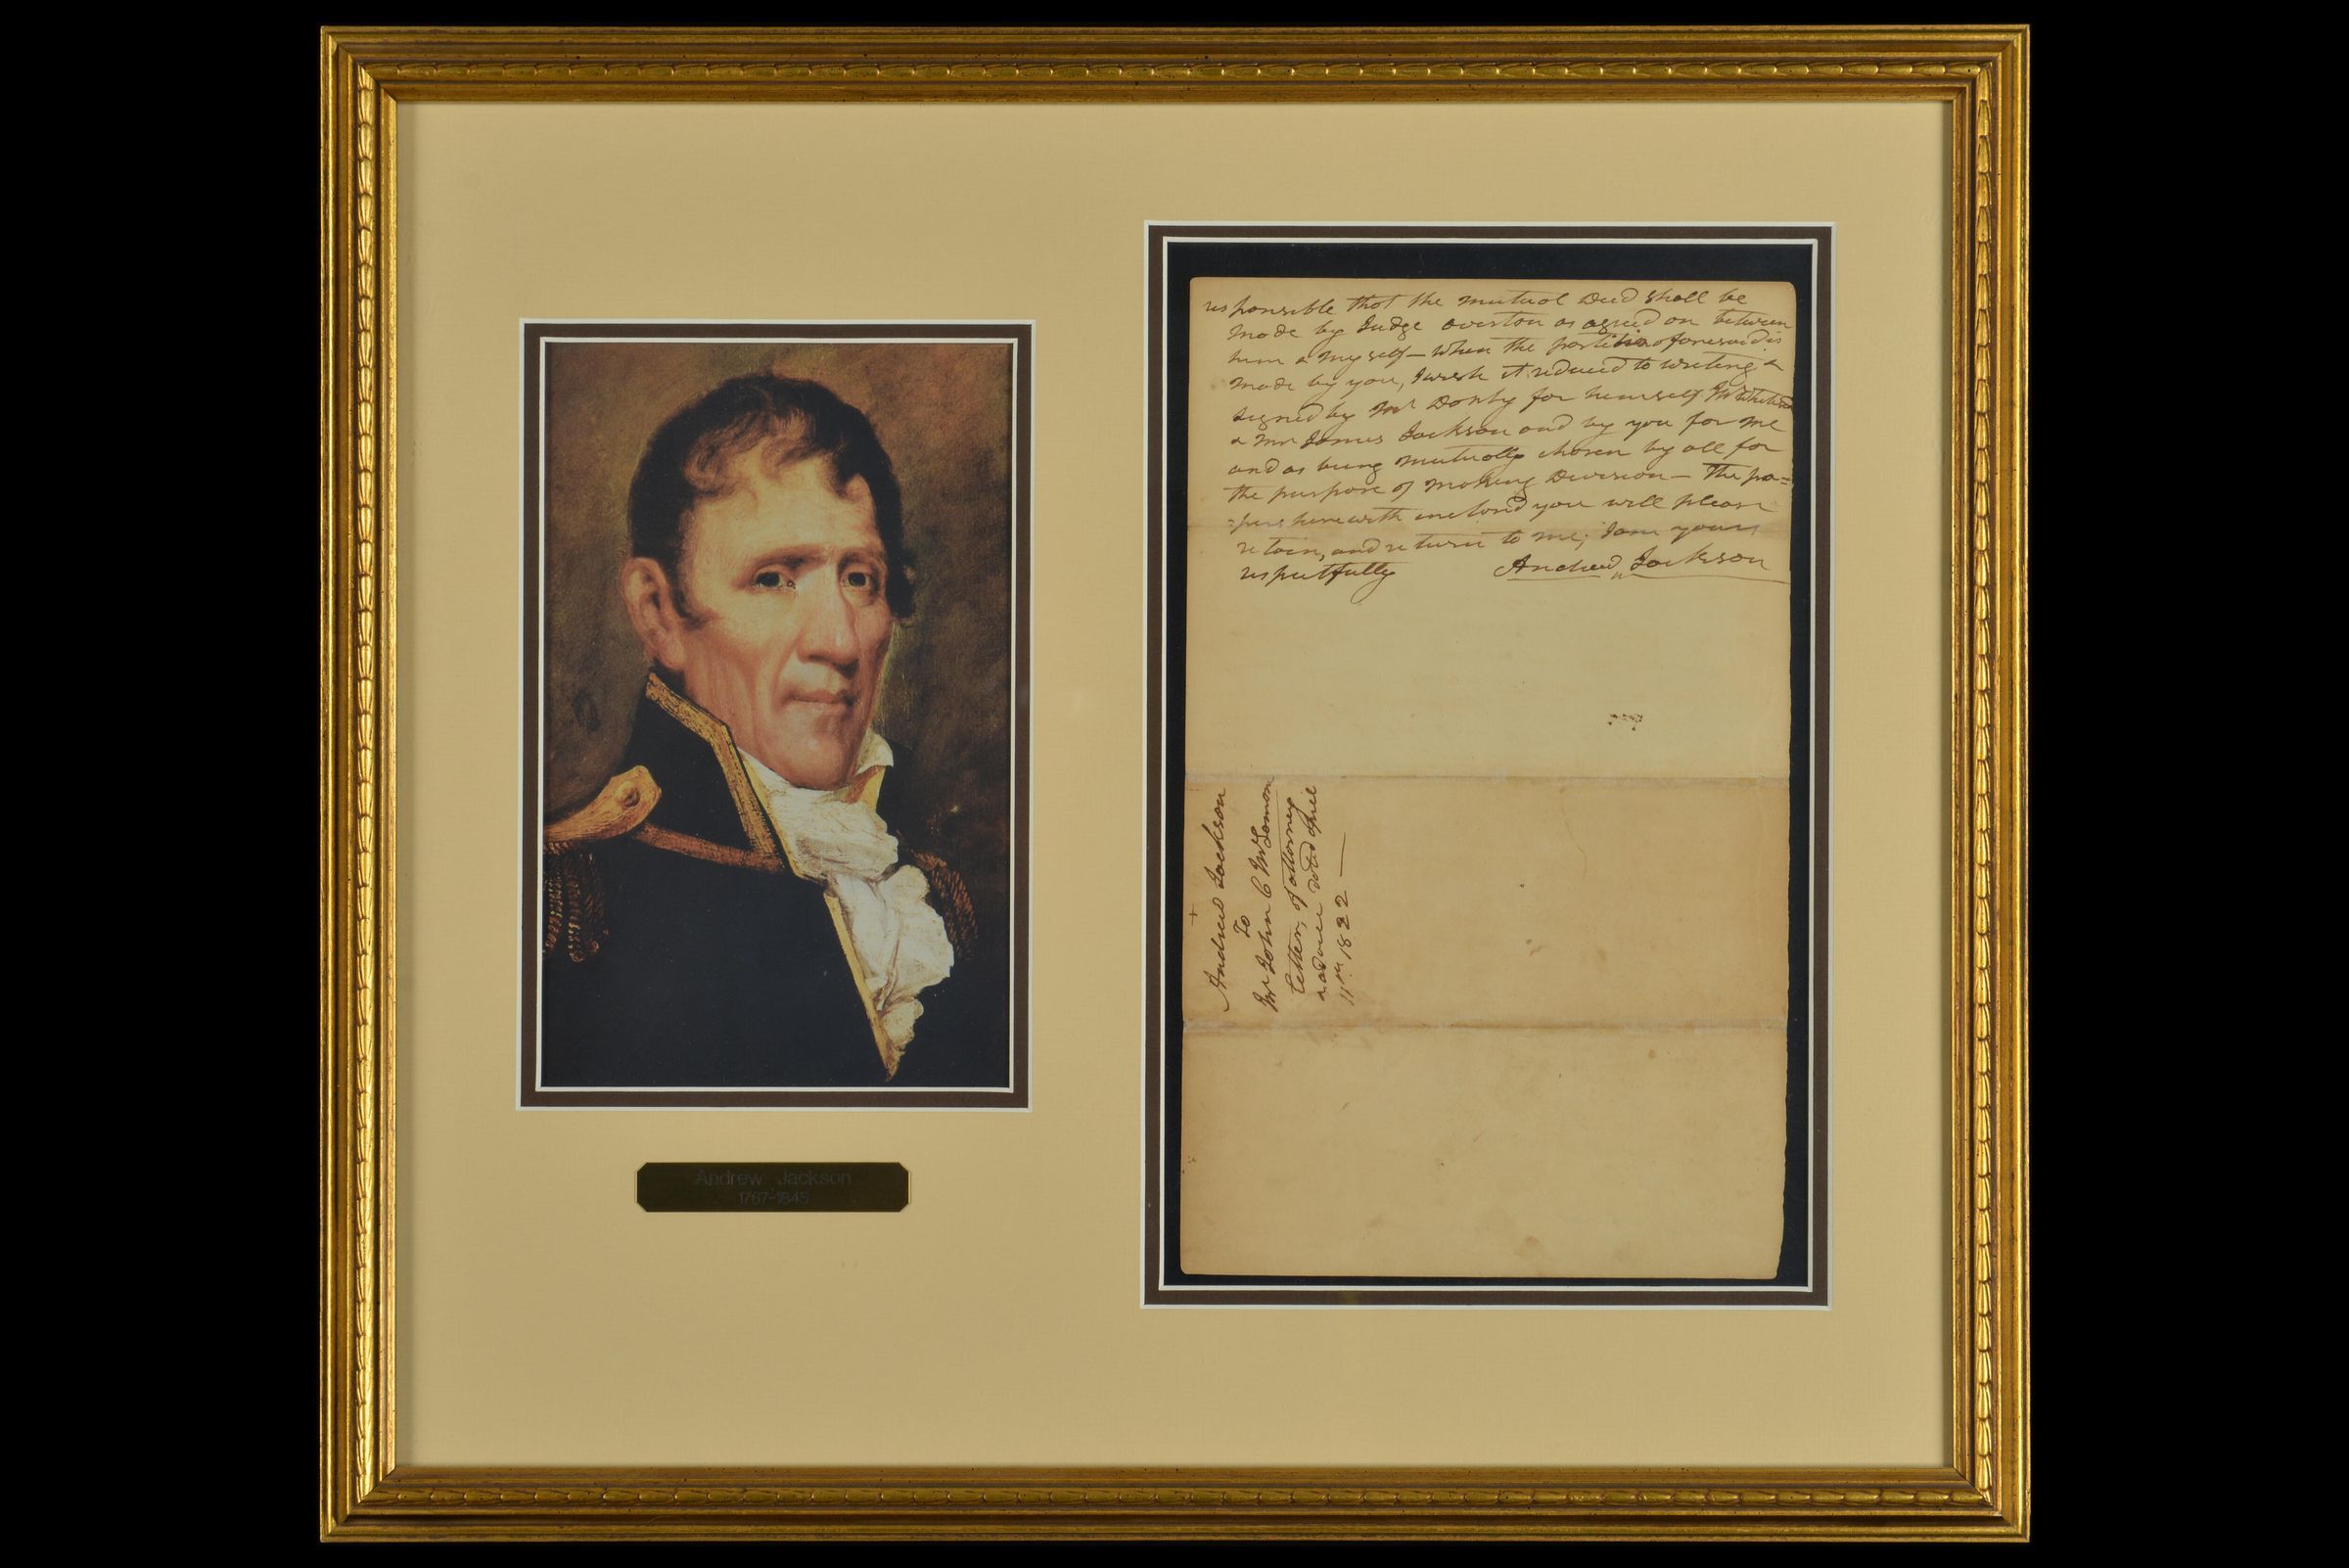 responsible that the mutual Deed shall be
made by Judge overton as agreed on between
him & myself — When the partition aforesaid is
made by you, I wish it reduced to writing &
signed by Mr for himself
& Mr James Jackson and by you for me
and as being mutually chosen by all for
the purpose of making Division — The pa=
=pers herewith inclosed you will please
retain, and return to me; I am yours
respectfully Andrew Jackson
Andrew Jackson
To
Mr John C McLemore
letter, of attorney
& advice dated April
11th 1822 —
Andrew Jackson
1767-1845